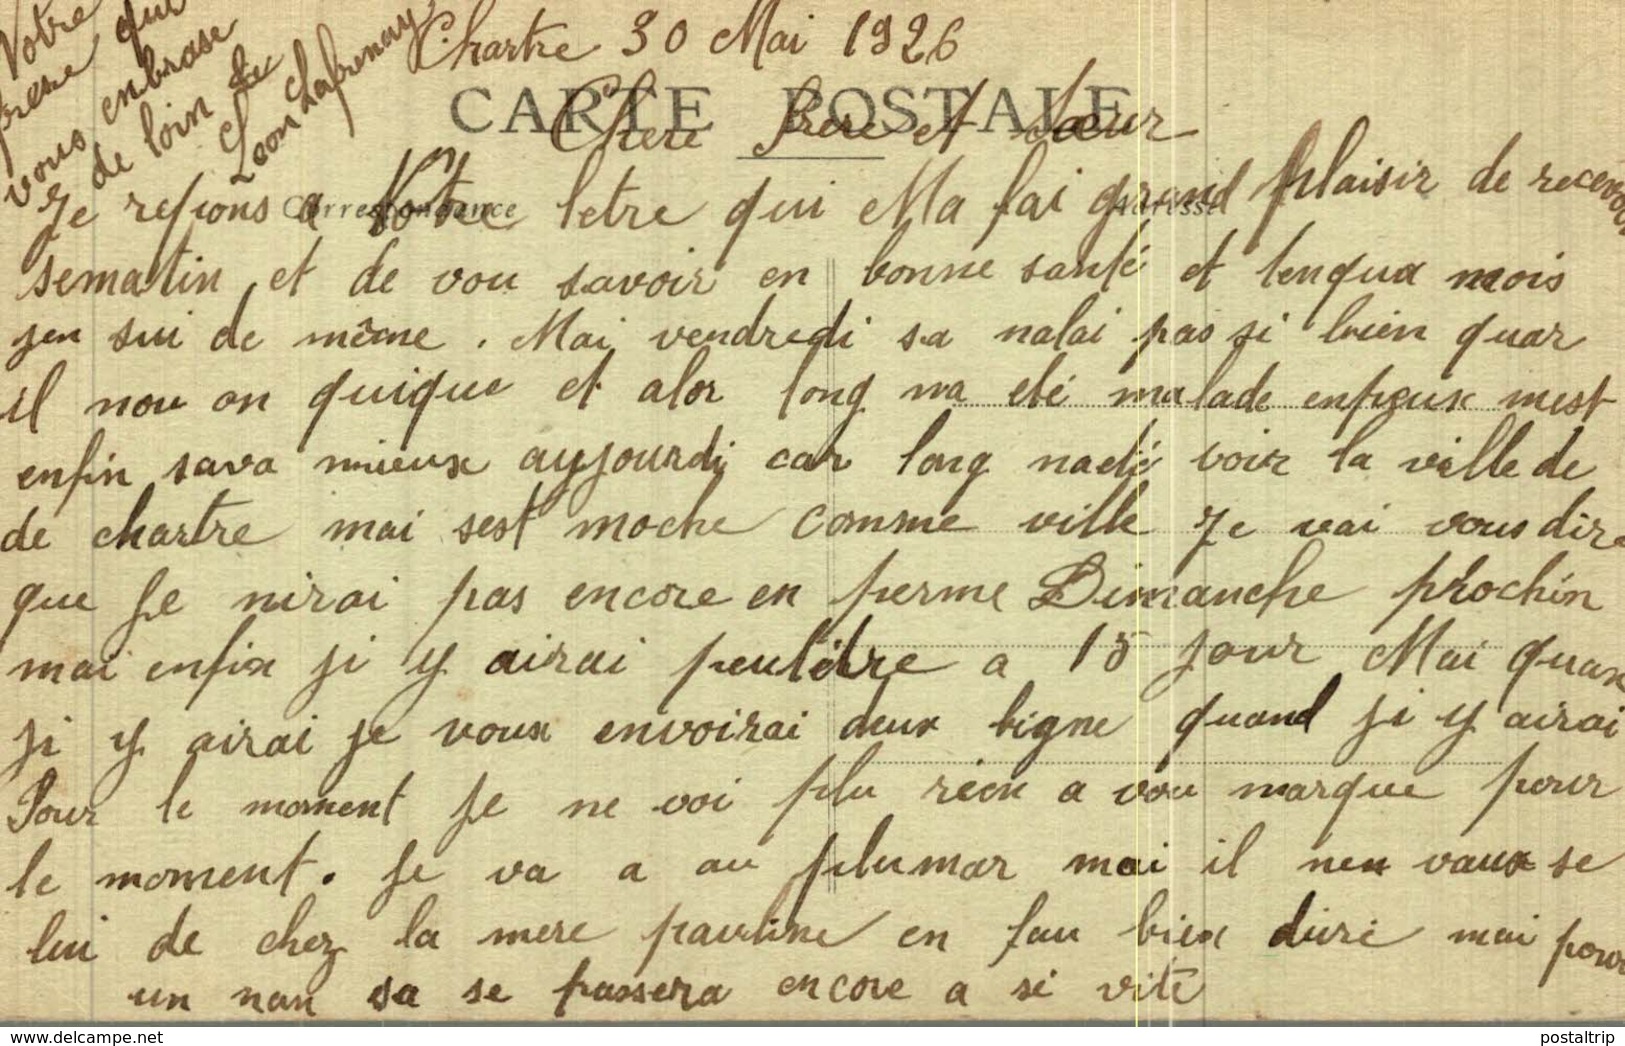 Chartre 30 Mai 1926
CARTE POSTALE
Chere frere et Sœur
Correspondance
Adresse
Je repons a Votre letre qui Ma fai grand plaisir de recevoir
sematin et de vou savoir en bonne santé et tenqua mois
jen sui de même. Mai vendredi sa nalai pas si bien quar
il nou on quique et alor long na eté malade enpeux mest
enfin sava mieux aujourdi car long nadé voir la ville de
de chartre mai sest moche comme ville Je vai vous dire
que Je nirai pas encore en perme Dimanche prochin
mai enfin ji y airai peutêtre a 15 jour Mai quan
ji y airai je voux envoirai deux ligne quand ji y airai
Pour le moment Je ne voi plu rien a vou marque pour
le moment. Je va a au plumar mai il nen vaux se
lui de chez la mere pauline en fau bien dire mai pour
un nan sa se passera encore a si vite
Votre
frere qui
vous enbrase
de loin
Leon Lafrenay
© 2022 delcampe.net
postaltrip